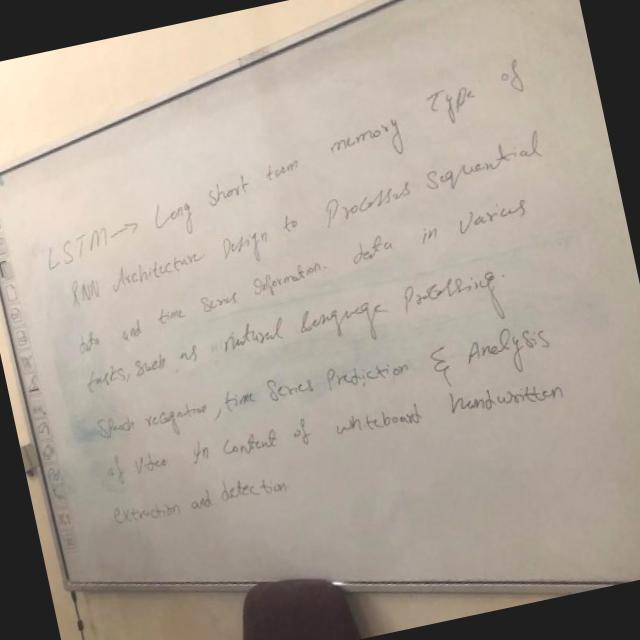 LSTM → Long short term memory Type of
RNN Architecture Design to Processes Sequential
data and time Series Information. data in Varius
tasks, such as Natural Language Processing.
Speech recognation, time Series Prediction & Analysis
of Video In Context of whiteboard handwritten
extraction and detection